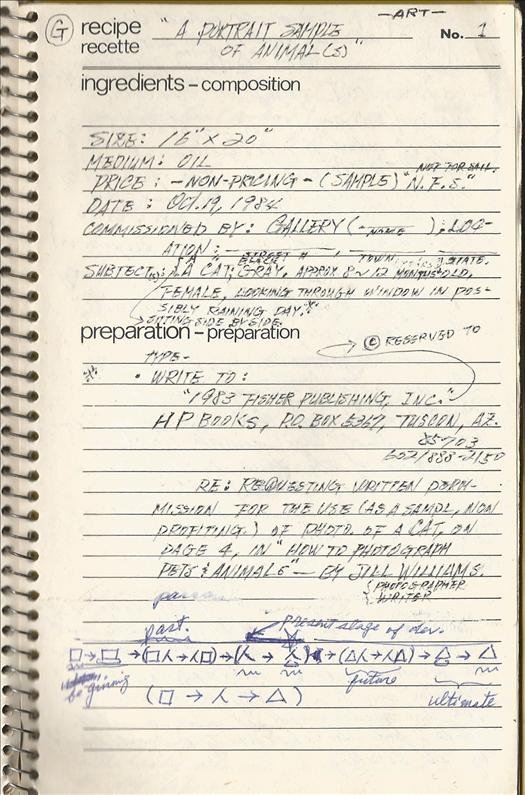 G recipe "A PORTRAIT SAMPLE —ART— No. 1
recette OF ANIMAL(S)"
ingredients – composition
SIZE: 16" X 20"
MEDIUM: OIL
NOT FOR SALE.
PRICE: – NON-PRICING – (SAMPLE) "N.F.S."
DATE: OCT. 19, 1984
COMMISSIONED BY: GALLERY (– NAME ); LOC-
ATION: STREET #, TOWN, STATE.
"A" BLACK
SUBJECT(S): A CAT; GRAY, APPROX 8–12 MONTHS OLD,
FEMALE, LOOKING THROUGH WINDOW IN POS-
SIBLY RAINING DAY.
SITTING SIDE BY SIDE.
preparation – preparation
© RESERVED TO
TYPE-
• WRITE TO:
"1983 FISHER PUBLISHING, INC."
HP BOOKS, P.O. BOX 5367, TUSCON, AZ.
85703
602/888-2150
RE: REQUESTING WRITTEN PERM-
MISSION FOR THE USE (AS A SAMPL, NON
PROFITING.) OF PHOTO. OF A CAT, ON
PAGE 4, IN "HOW TO PHOTOGRAPH
PETS & ANIMALS" — BY JILL WILLIAMS.
{PHOTOGRAPHER
WRITER
past. present stage of dev.
□ → □ → (□人 → 人□) → (人 → 人) → (△人 → 人△) → △ → △
begining future ultimate
(□ → 人 → △)